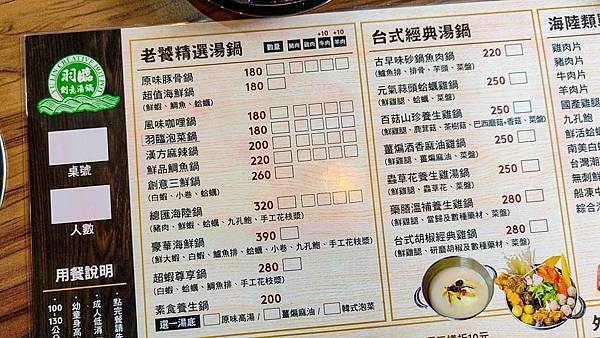 羽臨
創意湯鍋
桌號
人數
用餐說明
老饕精選湯鍋 數量 豬肉 雞肉 +10 牛肉 +10 羊肉
原味豚骨鍋 180
超值海鮮鍋 180
(鮮蝦、鯛魚、蛤蠣)
風味咖哩鍋 180
羽臨泡菜鍋 180
漢方麻辣鍋 200
鮮品鯛魚鍋 220
創意三鮮鍋 260
(白蝦、小卷、蛤蠣)
總匯海陸鍋 320
(豬肉、鮮蝦、蛤蠣、九孔鮑、手工花枝漿)
豪華海鮮鍋 390
(鮮大蝦、白蝦、鱸魚排、蛤蠣、小卷、九孔鮑、手工花枝漿)
超蝦尊享鍋 280
(白蝦、蛤蠣、鯛魚排、手工花枝漿)
素食養生鍋 200
選一湯底 原味高湯/ 薑麻油/ 韓式泡菜
台式經典湯鍋
古早味砂鍋魚肉鍋 220
(鱸魚排、排骨、芋頭、菜盤)
元氣蒜頭蛤蠣雞鍋 250
(鮮雞腿、蛤蠣、菜盤)
百菇山珍養生雞鍋 250
(鮮雞腿、鹿茸菇、茶樹菇、巴西蘑菇、香菇、菜盤)
薑煸酒香麻油雞鍋 250
(鮮雞腿、薑煸麻油、菜盤)
蟲草花養生雞湯鍋 250
(鮮雞腿、蟲草花、菜盤)
藥膳溫補養生雞鍋 280
(鮮雞腿、當歸及數種藥材、菜盤)
台式胡椒經典雞鍋 280
(鮮雞腿、研磨胡椒及數種藥材、菜盤)
海陸類
雞肉片
豬肉片
牛肉片
羊肉片
國產雞
九孔鮑
鮮活蛤蠣
南美白
台灣鯛
台灣
無刺
船凍
綜合
點完餐請先
成人低消
幼童身高
100-130公